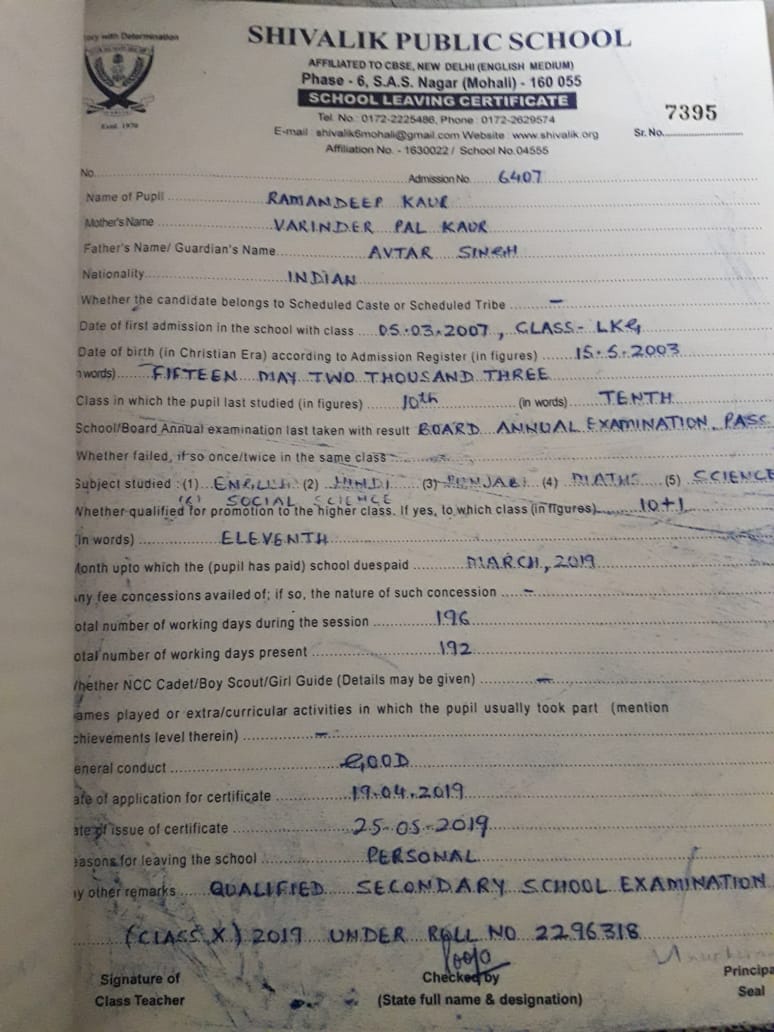 ory with Determination
SHIVALIK PUBLIC SCHOOL
AFFILIATED TO CBSE, NEW DELHI (ENGLISH MEDIUM)
Phase - 6, S.A.S. Nagar (Mohali) - 160 055
SCHOOL LEAVING CERTIFICATE
Estd. 1970
Tel. No.: 0172-2225486, Phone : 0172-2629574
E-mail : shivalik6mohali@gmail.com Website : www.shivalik.org
Sr. No. 7395
Affiliation No. - 1630022 / School No.04555
No. Admission No. 6407
Name of Pupil RAMANDEEP KAUR
Mother's Name VARINDER PAL KAUR
Father's Name/ Guardian's Name AVTAR SINGH
Nationality INDIAN
Whether the candidate belongs to Scheduled Caste or Scheduled Tribe –
Date of first admission in the school with class 05.03.2007, CLASS-LKG
Date of birth (in Christian Era) according to Admission Register (in figures) 15.5.2003
n words) FIFTEEN MAY TWO THOUSAND THREE
Class in which the pupil last studied (in figures) 10th (in words) TENTH
School/Board Annual examination last taken with result BOARD ANNUAL EXAMINATION, PASS
Whether failed, if so once/twice in the same class
Subject studied : (1) ENGLISH (2) HINDI (3) PUNJABI (4) MATHS (5) SCIENCE
(6) SOCIAL SCIENCE
Whether qualified for promotion to the higher class. If yes, to which class (in figures) 10+1
in words) ELEVENTH
Month upto which the (pupil has paid) school duespaid MARCH, 2019
ny fee concessions availed of; if so, the nature of such concession –
otal number of working days during the session 196
otal number of working days present 192
Whether NCC Cadet/Boy Scout/Girl Guide (Details may be given) –
ames played or extra/curricular activities in which the pupil usually took part (mention
chievements level therein) –
eneral conduct GOOD
ate of application for certificate 19.04.2019
ate of issue of certificate 25-05-2019
easons for leaving the school PERSONAL
ny other remarks QUALIFIED SECONDARY SCHOOL EXAMINATION
(CLASS X) 2019 UNDER ROLL NO 2296318
Pooja
Signature of Checked by Principa
Class Teacher (State full name & designation) Seal